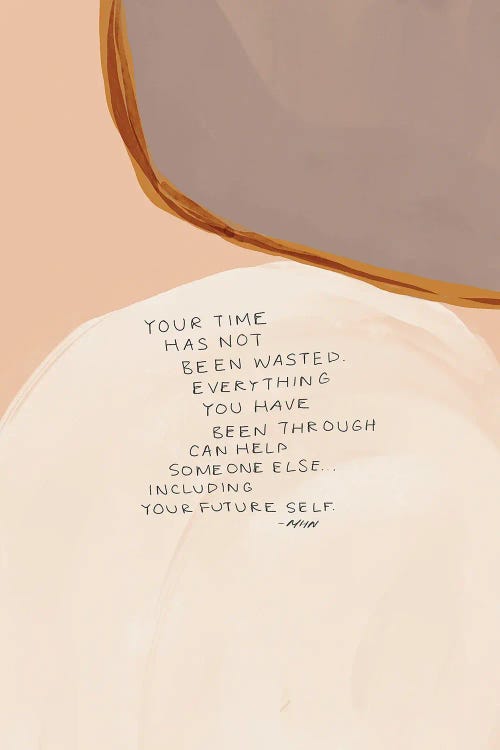 YOUR TIME
HAS NOT
BEEN WASTED.
EVERYTHING
YOU HAVE
BEEN THROUGH
CAN HELP
SOMEONE ELSE...
INCLUDING
YOUR FUTURE SELF.
-MHN